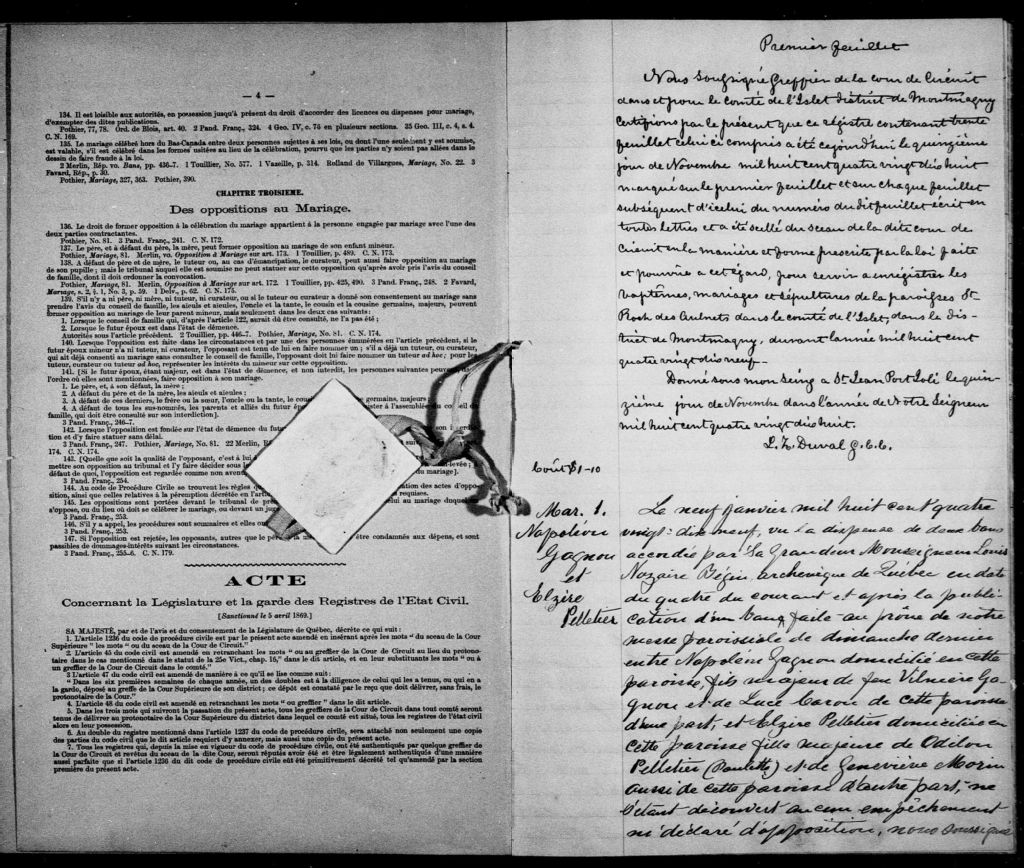 — 4 —
134. Il est loisible aux autorités, en possession jusqu'à présent du droit d'accorder des licences ou dispenses pour mariage,
d'exempter des dites publications.
Pothier, 77, 78. Ord. de Blois, art. 40. 2 Pand. Franç., 324. 4 Geo. IV, c. 75 en plusieurs sections. 35 Geo. III, c. 4, s. 4.
C. N. 169.
135. Le mariage célébré hors du Bas-Canada entre deux personnes sujettes à ses lois, ou dont l'une seulement y est soumise,
est valable, s'il est célébré dans les formes usitées au lieu de la célébration, pourvu que les parties n'y soient pas allées dans le
dessin de faire fraude à la loi.
2 Merlin, Rép. vo. Bans, pp. 436-7. 1 Touillier, No. 577. 1 Vazeille, p. 314. Rolland de Villargues, Mariage, No. 22. 3
Favard, Rép., p. 30.
Pothier, Mariage, 327, 363. Pothier, 390.
CHAPITRE TROISIEME.
Des oppositions au Mariage.
136. Le droit de former opposition à la célébration du mariage appartient à la personne engagée par mariage avec l'une des
deux parties contractantes.
Pothier, No. 81. 3 Pand. Franç., 241. C. N. 172.
137. Le père, et à défaut du père, la mère, peut former opposition au mariage de son enfant mineur.
Pothier, Mariage, 81. Merlin, vo. Opposition à Mariage sur art. 173. 1 Touillier, p. 489. C. N. 173.
138. A défaut de père et de mère, le tuteur ou, au cas d'émancipation, le curateur, peut aussi faire opposition au mariage
de son pupille ; mais le tribunal auquel elle est soumise ne peut statuer sur cette opposition qu'après avoir pris l'avis du conseil
de famille, dont il doit ordonner la convocation.
Pothier, Mariage, 81. Merlin, Opposition à Mariage sur art. 172. 1 Touillier, pp. 425, 490. 3 Pand. Franç., 248. 2 Favard,
Mariage, s. 2, § 1, No. 3, p. 59. 1 Delv., p. 62. C. N. 175.
139. S'il n'y a ni père, ni mère, ni tuteur, ni curateur, ou si le tuteur ou curateur a donné son consentement au mariage sans
prendre l'avis du conseil de famille, les aïeuls et aïeules, l'oncle et la tante, le cousin et la cousine germains, majeurs, peuvent
former opposition au mariage de leur parent mineur, mais seulement dans les deux cas suivants :
1. Lorsque le conseil de famille qui, d'après l'article 122, aurait dû être consulté, ne l'a pas été ;
2. Lorsque le futur époux est dans l'état de démence.
Autorités sous l'article précédent. 2 Touillier, pp. 446-7. Pothier, Mariage, No. 81. C. N. 174.
140. Lorsque l'opposition est faite dans les circonstances et par une des personnes énumérées en l'article précédent, si le
futur époux mineur n'a ni tuteur, ni curateur, l'opposant est tenu de lui en faire nommer un ; s'il a déjà un tuteur, ou curateur,
qui ait déjà consenti au mariage sans consulter le conseil de famille, l'opposant doit lui faire nommer un tuteur ad hoc ; pour les
tuteur, curateur ou tuteur ad hoc, représenter les intérêts du mineur sur cette opposition.
141. [Si le futur époux, étant majeur, est dans l'état de démence, et non interdit, les personnes suivantes peuvent
l'ordre où elles sont mentionnées, faire opposition à son mariage.
1. Le père, et, à son défaut, la mère ;
2. A défaut du père et de la mère, les aïeuls et aïeules ;
3. A défaut de ces derniers, le frère ou la sœur, l'oncle ou la tante, le cou germains, majeurs
4. A défaut de tous les sus-nommés, les parents et alliés du futur ép ister à l'assemblée du conseil de
famille, qui doit être consulté sur son interdiction].
3 Pand. Franç., 246-7.
142. Lorsque l'opposition est fondée sur l'état de démence du futur
tion et d'y faire statuer sans délai.
3 Pand. Franç., 247. Pothier, Mariage, No. 81. 22 Merlin, R
174. C. N. 174.
143. [Quelle que soit la qualité de l'opposant, c'est à lui
mettre son opposition au tribunal et l'y faire décider sous
défaut de quoi, l'opposition est regardée comme non aven du mariage].
3 Pand. Franç., 254.
144. Au code de Procédure Civile se trouvent les règles ation des actes d'oppo-
sition, ainsi que celles relatives à la péremption décrétée en l'arti requises.
145. Les oppositions sont portées devant le tribunal de pr lui au mariage duquel
s'oppose, ou du lieu où doit se célébrer le mariage, ou devant un jug
3 Pand. Franç., 253.
146. S'il y a appel, les procédures sont sommaires et elles on
3 Pand. Franç., 253.
147. Si l'opposition est rejetée, les opposants, autres que le père être condamnés aux dépens, et sont
passibles de dommages-intérêts suivant les circonstances.
3 Pand. Franç., 255-6. C. N. 179.
ACTE
Concernant la Législature et la garde des Registres de l'Etat Civil.
[Sanctionné le 5 avril 1869.]
SA MAJESTÉ, par et de l'avis et du consentement de la Législature de Québec, décrète ce qui suit :
1. L'article 1236 du code de procédure civile est par le présent acte amendé en insérant après les mots " du sceau de la Cour
Supérieure " les mots " ou du sceau de la Cour de Circuit."
2. L'article 45 du code civil est amendé en retranchant les mots " ou au greffier de la Cour de Circuit au lieu du protono-
taire dans le cas mentionné dans le statut de la 25e Vict., chap. 16," dans le dit article, et en leur substituant les mots " ou à
un greffier de la Cour de Circuit dans le comté."
3 L'article 47 du code civil est amendé de manière à ce qu'il se lise comme suit :
" Dans les six premières semaines de chaque année, un des doubles est à la diligence de celui qui les a tenus, ou qui en a
la garde, déposé au greffe de la Cour Supérieure de son district ; ce dépôt est constaté par le reçu que doit délivrer, sans frais, le
protonotaire de la Cour."
4. L'article 48 du code civil est amendé en retranchant les mots " ou greffier " dans le dit article.
5. Dans les trois mois qui suivront la passation du présent acte, tous les greffiers de la Cour de Circuit dans tout comté seront
tenus de délivrer au protonotaire de la Cour Supérieure du district dans lequel ce comté est situé, tous les registres de l'état civil
alors en leur possession.
6. Au double du registre mentionné dans l'article 1237 du code de procédure civile, sera attaché non seulement une copie
des parties du code civil que le dit article requiert d'y annexer, mais aussi une copie du présent acte.
7. Tous les registres qui, depuis la mise en vigueur du code de procédure civile, ont été authentiqués par quelque greffier de
la Cour de Circuit et revêtus du sceau de la dite Cour, seront réputés avoir été et être légalement authentiqués d'une manière
aussi parfaite que si l'article 1236 du dit code de procédure civile eût été primitivement décrété tel qu'amendé par la section
première du présent acte.
Premier feuillet
Nous soussigné Greffier de la cour de Circuit
dans et pour le comté de l'Islet District de Montmagny
certifions par le présent que ce régistre contenant trente
feuillet celui ci compris a été cejourd'hui le quinzième
jour de Novembre mil huit cent quatre vingt dix huit
marqué sur le premier feuillet et sur chaque feuillet
subséquent d'icelui du numéro du dit feuillet écrit en
toutes lettres et a été scellé du sceau de la dite cour de
Circuit en la manière et forme prescrite par la loi faite
et pourvue a cet égard, pour servir a enregistrer les
baptêmes, mariages et sépultures de la paroisses St.
Roch des Aulnets dans le comté de l'Islet, dans le dis-
trict de Montmagny, durant l'année mil huit cent
quatre vingt dix neuf.
Donné sous mon seing a St. Jean Port Joli le quin-
zième jour de Novembre dans l'année de Notre Seigneur
mil huit cent quatre vingt dix huit.
L. Z. Duval g. c. c.
Coût $1-10
Mar. 1.
Napoléon
Gagnon
et
Elzire
Pelletier
Le neuf janvier mil huit cent quatre
vingt-dix-neuf, vu la dispense de deux bans
accordée par Sa Grandeur Monseigneur Louis
Nazaire Bégin, archevêque de Québec en date
du quatre du courant et après la publi-
cation d'un banc faite au prône de notre
messe paroissiale de dimanche dernier
entre Napoléon Gagnon domicilié en cette
paroisse, fils majeur de feu Vilmère Ga-
gnon et de Luce Caron de cette paroisse
d'une part, et Elzire Pelletier domiciliée en
cette paroisse fille majeure de Odilon
Pelletier (Paulette) et de Geneviève Morin
aussi de cette paroisse d'autre part, ne
s'étant découvert aucun empêchement
ni déclaré d'opposition, nous soussigné